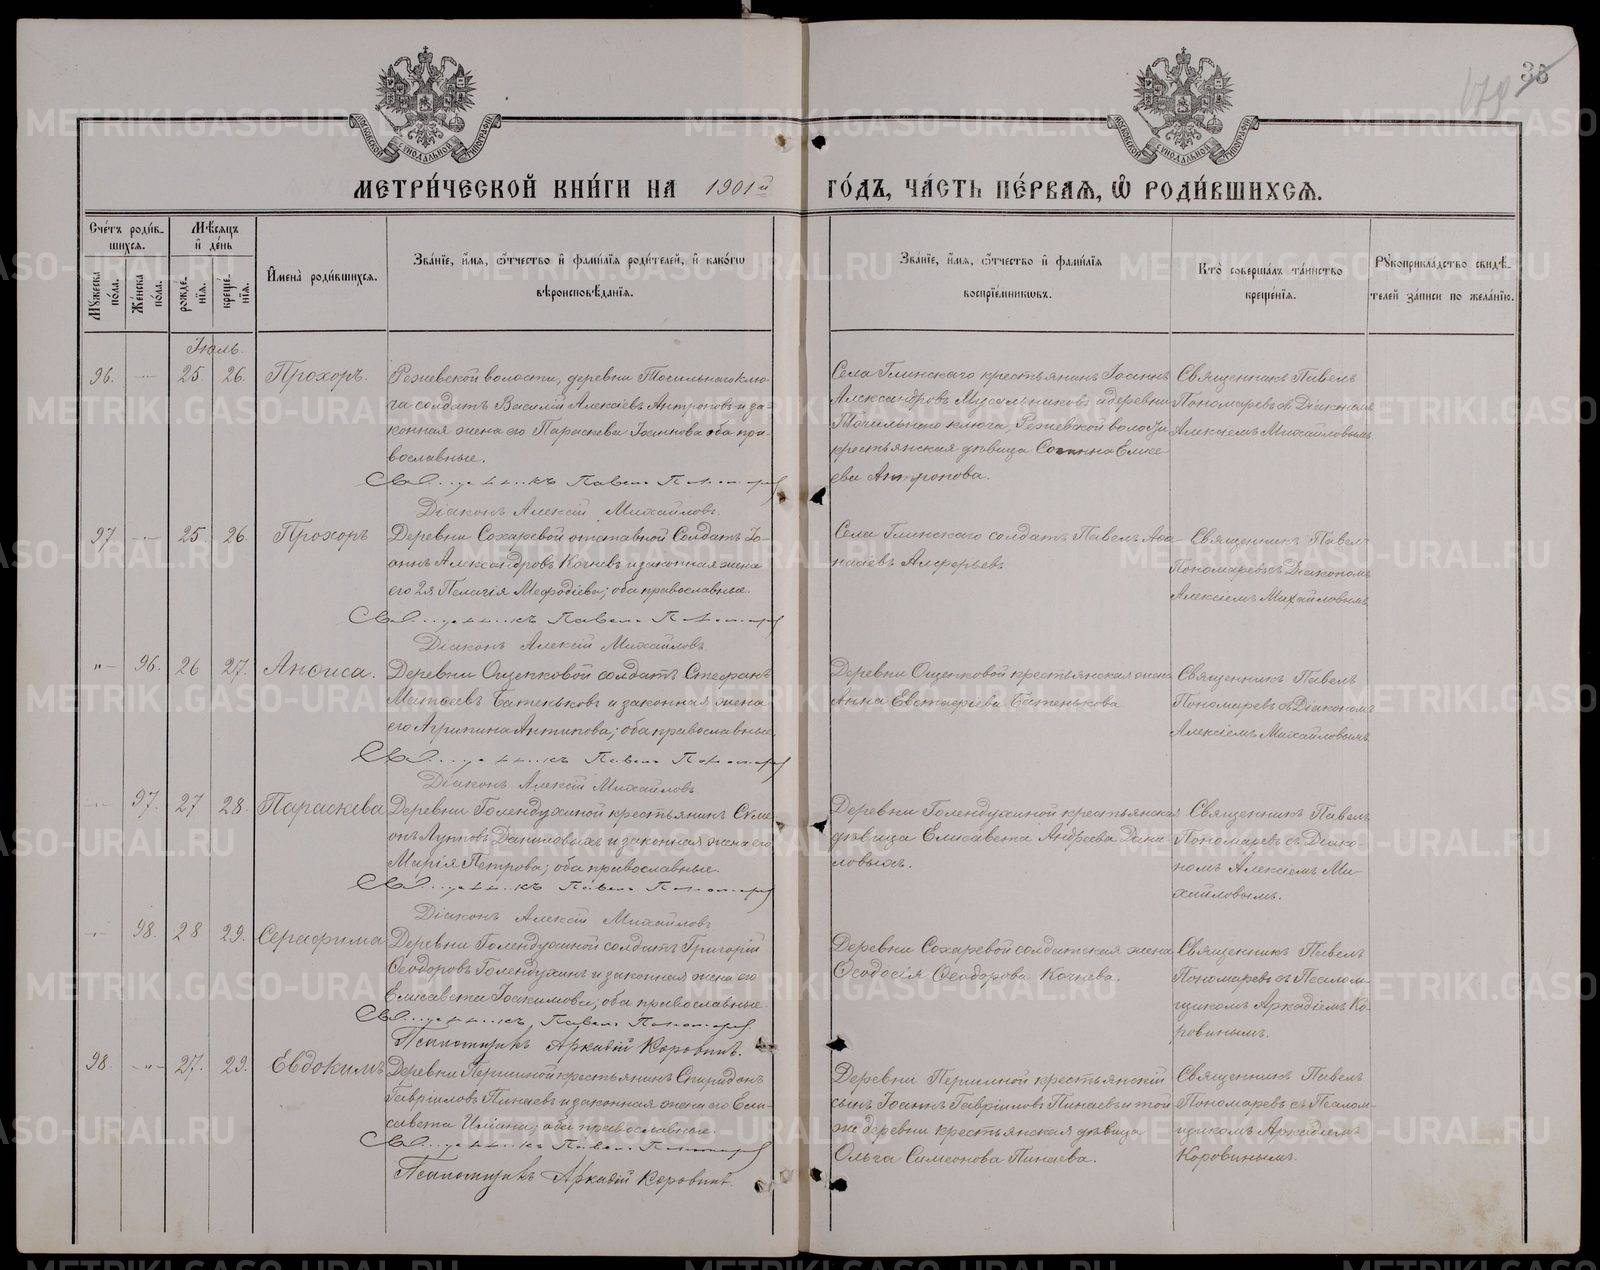 35
178
МОСКОВСКОЙ СѴНОДАЛЬНОЙ ТИПОГРАФІИ
МОСКОВСКОЙ СѴНОДАЛЬНОЙ ТИПОГРАФІИ
МЕТРИ́ЧЕСКОЙ КНИ́ГИ НА 1901й ГО́ДЪ, ЧА́СТЬ ПЕ́РВАЯ, Ѡ҆ РОДИ́ВШИХСЯ.
Сче́тъ роди́в-
шихся.
Мꙋжеска по́ла.
Же́нска по́ла.
Мѣ́сяцъ
и҆ де́нь
рожде́-
нїя.
креще́-
нїя.
И҆мена̀ роди́вшихся.
Зва́нїе, и҆́мя, ѻ҆́тчество и҆ фами́лїя роди́телей, и҆ како́гѡ
вѣроисповѣ́данїя.
Зва́нїе, и҆́мя, ѻ҆́тчество и҆ фами́лїя
воспрїе́мникѡвъ.
Кто̀ соверша́лъ та́инство
креще́нїя.
Рꙋкоприкла́дство свидѣ́-
телей за́писи по жела́нїю.
Іюль.
96. 25 26. Прохоръ.
Режевской волости, деревни Точильнаго клю-
ча солдатъ Василій Алексіевъ Антроповъ и за-
конная жена его Параскева Іоаннова оба пра-
вославные.
Священникъ Павелъ Пономаревъ
Діаконъ Алексій Михайловъ.
Села Глинскаго крестьянинъ Іоаннъ
Александровъ Мусальниковъ и деревни
Точильнаго ключа, Режевской волости
крестьянская дѣвица Елисе-
ева Антропова.
Священникъ Павелъ
Пономаревъ съ Діакономъ
Алексіемъ Михайловымъ
97 25. 26. Прохоръ
Деревни Сохаревой отставной солдатъ Іо-
аннъ Александровъ Кочневъ и законная жена
его 2я Пелагія Меѳодіева; оба православные.
Священникъ Павелъ Пономаревъ
Діаконъ Алексій Михайловъ.
Села Глинскаго солдатъ Павелъ Аѳа-
насіевъ Алферьевъ
Священникъ Павелъ
Пономаревъ съ Діакономъ
Алексіемъ Михайловымъ
96. 26 27. Анѳиса.
Деревни Ощепковой солдатъ Стефанъ
Матѳеевъ Батеньковъ и законная жена
его Агрипина Антипова; оба православные
Священникъ Павелъ Пономаревъ
Діаконъ Алексій Михайловъ
Деревни Ощепковой крестьянская жена
Анна Евстафіева Батенькова
Священникъ Павелъ
Пономаревъ съ Діакономъ
Алексіемъ Михайловымъ
97. 27 28. Параскева
Деревни Голендухиной крестьянинъ Симе-
онъ Лупповъ Даниловыхъ и законная жена его
Марія Петрова; оба православные.
Священникъ Павелъ Пономаревъ
Діаконъ Алексій Михайловъ
Деревни Голендухиной крестьянская
дѣвица Елисавета Андреева Дани-
ловыхъ.
Священникъ Павелъ
Пономаревъ съ Діако-
номъ Алексіемъ Ми-
хайловымъ.
98. 28 29. Серафима
Деревни Голендухиной солдатъ Григорій
Ѳеодоровъ Голендухинъ и законная жена его
Елисавета Іоакимова; оба православные.
Священникъ Павелъ Пономаревъ
Псаломщикъ Аркадій Коровинъ.
Деревни Сохаревой солдатская жена
Ѳеодосія Ѳеодорова Кочнева.
Священникъ Павелъ
Пономаревъ съ Псалом-
щикомъ Аркадіемъ Ко-
ровинымъ.
98. 27. 29. Евдокимъ
Деревни Першиной крестьянинъ Спиридонъ
Гавріиловъ Пинаевъ и законная жена его Ели-
савета; оба православные.
Священникъ Павелъ Пономаревъ
Псаломщикъ Аркадій Коровинъ.
Деревни Першиной крестьянскій
сынъ Іоаннъ Гавріиловъ Пинаевъ и той
же деревни крестьянская дѣвица
Ольга Симеонова Пинаева.
Священникъ Павелъ
Пономаревъ съ Псалом-
щикомъ Аркадіемъ
Коровинымъ.
METRIKI.GASO-URAL.RU